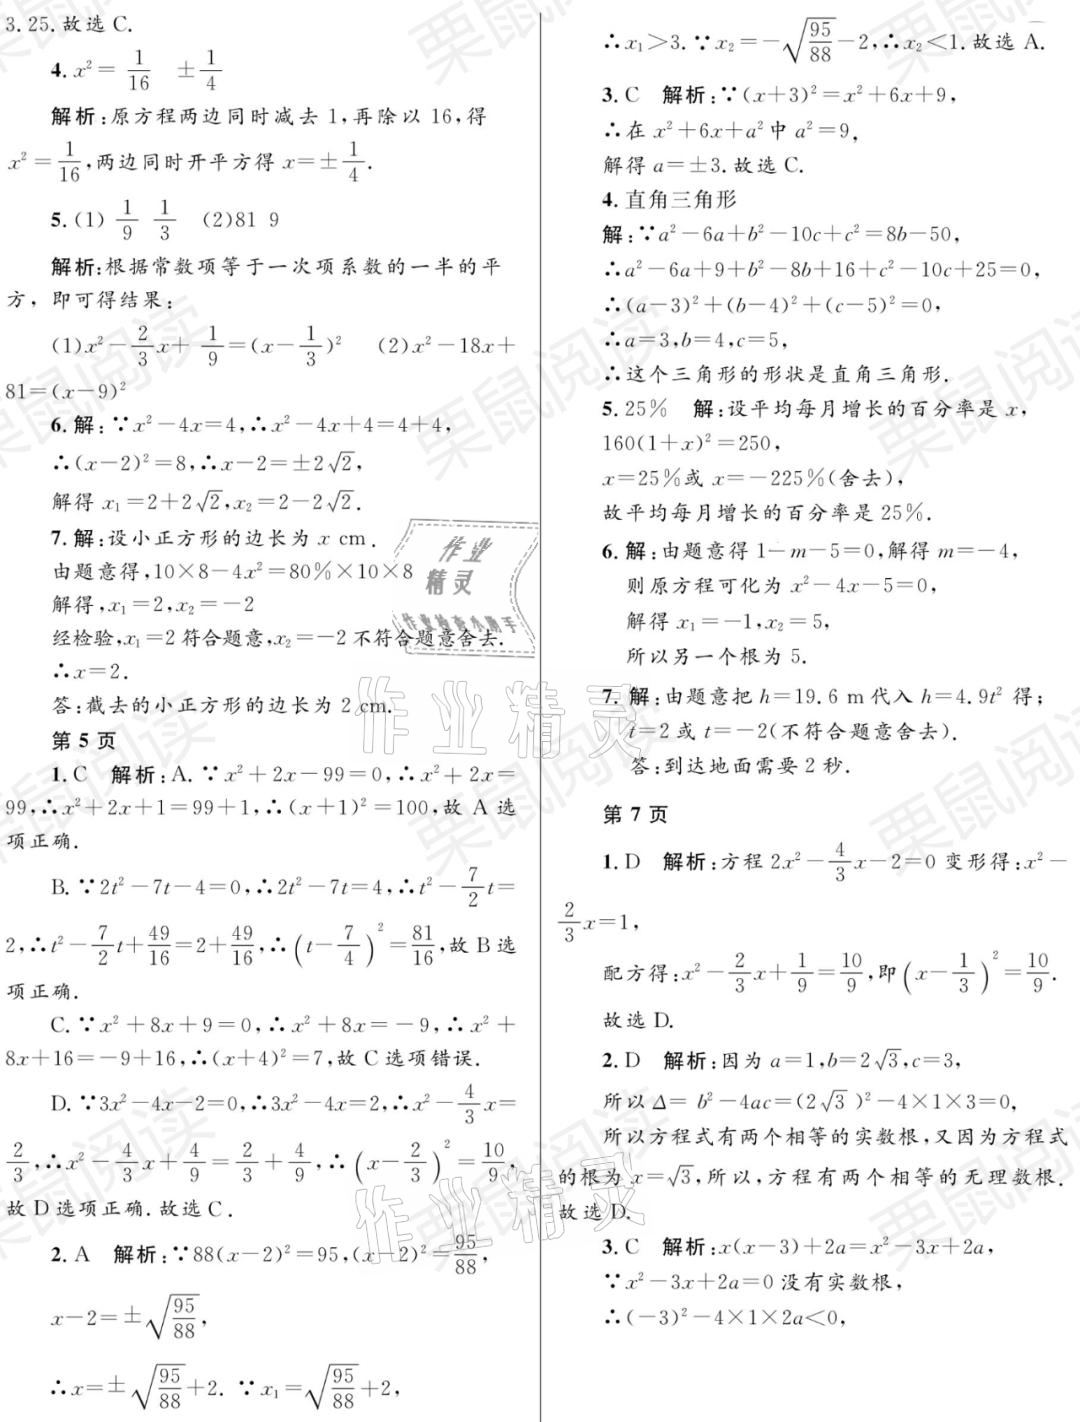 3.25.故选 C.
4. x²= 1/16 ±1/4
解析:原方程两边同时减去 1,再除以 16,得
x²=1/16,两边同时开平方得 x=±1/4.
5. (1) 1/9 1/3 (2)81 9
解析:根据常数项等于一次项系数的一半的平
方，即可得结果:
(1)x²-2/3x+1/9=(x-1/3)² (2)x²-18x+
81=(x-9)²
6. 解:∵x²-4x=4,∴x²-4x+4=4+4,
∴(x-2)²=8,∴x-2=±2√2,
解得 x₁=2+2√2,x₂=2-2√2.
7. 解:设小正方形的边长为 x cm.
由题意得,10×8-4x²=80%×10×8
解得,x₁=2,x₂=-2
经检验,x₁=2 符合题意,x₂=-2 不符合题意舍去.
∴x=2.
答:截去的小正方形的边长为 2 cm.
第 5 页
1. C 解析:A.∵x²+2x-99=0,∴x²+2x=
99,∴x²+2x+1=99+1,∴(x+1)²=100,故 A 选
项正确.
B.∵2t²-7t-4=0,∴2t²-7t=4,∴t²-7/2t=
2,∴t²-7/2t+49/16=2+49/16,∴(t-7/4)²=81/16,故 B 选
项正确.
C.∵x²+8x+9=0,∴x²+8x=-9,∴x²+
8x+16=-9+16,∴(x+4)²=7,故 C 选项错误.
D.∵3x²-4x-2=0,∴3x²-4x=2,∴x²-4/3x=
2/3,∴x²-4/3x+4/9=2/3+4/9,∴(x-2/3)²=10/9,
故 D 选项正确.故选 C.
2. A 解析:∵88(x-2)²=95,(x-2)²=95/88,
x-2=±√(95/88),
∴x=±√(95/88)+2.∵x₁=√(95/88)+2,
∴x₁>3.∵x₂=-√(95/88)-2,∴x₂<1.故选 A.
3. C 解析:∵(x+3)²=x²+6x+9,
∴在 x²+6x+a²中 a²=9,
解得 a=±3.故选 C.
4. 直角三角形
解:∵a²-6a+b²-10c+c²=8b-50,
∴a²-6a+9+b²-8b+16+c²-10c+25=0,
∴(a-3)²+(b-4)²+(c-5)²=0,
∴a=3,b=4,c=5,
∴这个三角形的形状是直角三角形.
5. 25% 解:设平均每月增长的百分率是 x,
160(1+x)²=250,
x=25%或 x=-225%(舍去),
故平均每月增长的百分率是 25%.
6. 解:由题意得 1-m-5=0,解得 m=-4,
则原方程可化为 x²-4x-5=0,
解得 x₁=-1,x₂=5,
所以另一个根为 5.
7. 解:由题意把 h=19.6 m代入 h=4.9t² 得;
t=2 或 t=-2(不符合题意舍去).
答:到达地面需要 2 秒.
第 7 页
1. D 解析:方程 2x²-4/3x-2=0 变形得:x²-
2/3x=1,
配方得:x²-2/3x+1/9=10/9,即(x-1/3)²=10/9.
故选 D.
2. D 解析:因为 a=1,b=2√3,c=3,
所以 Δ= b²-4ac=(2√3)²-4×1×3=0,
所以方程式有两个相等的实数根,又因为方程式
的根为 x=√3,所以,方程有两个相等的无理数根.
故选 D.
3. C 解析:x(x-3)+2a=x²-3x+2a,
∵x²-3x+2a=0 没有实数根,
∴(-3)²-4×1×2a<0,
作业
精灵
作业检查小助手
作业精灵
作业精灵
栗鼠阅读